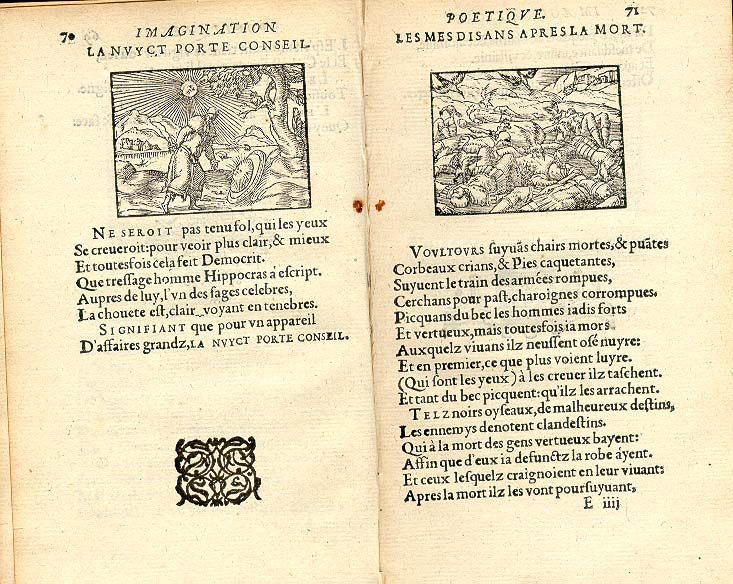 70 IMAGINATION
LA NVYCT PORTE CONSEIL.
NE SEROIT pas tenu fol, qui les yeux
Se creueroit: pour veoir plus clair, & mieux
Et toutesfois cela feit Democrit.
Que tressage homme Hippocras á escript.
Aupres de luy, l'vn des sages celebres,
La chouete est, clair voyant en tenebres.
SIGNIFIANT que pour vn appareil
D'affaires grandz, LA NVYCT PORTE CONSEIL.
POETIQVE. 71
LES MESDISANS APRES LA MORT.
VOVLTOVRS suyuãs chairs mortes, & puãtes
Corbeaux crians, & Pies caquetantes,
Suyuent le train des armées rompues,
Cerchans pour past, charoignes corrompues.
Picquans du bec les hommes iadis forts
Et vertueux, mais toutesfois ia mors
Auxquelz viuans ilz neussent osé nuyre:
Et en premier, ce que plus voient luyre.
(Qui sont les yeux) à les creuer ilz taschent.
Et tant du bec picquent: qu'ilz les arrachent.
TELZ noirs oyseaux, de malheureux destins,
Les ennemys denotent clandestins.
Qui à la mort des gens vertueux bayent:
Affin que d'eux ia defunctz la robe áyent.
Et ceux lesquelz craignoient en leur viuant:
Apres la mort ilz les vont poursuyuant,
E iiij